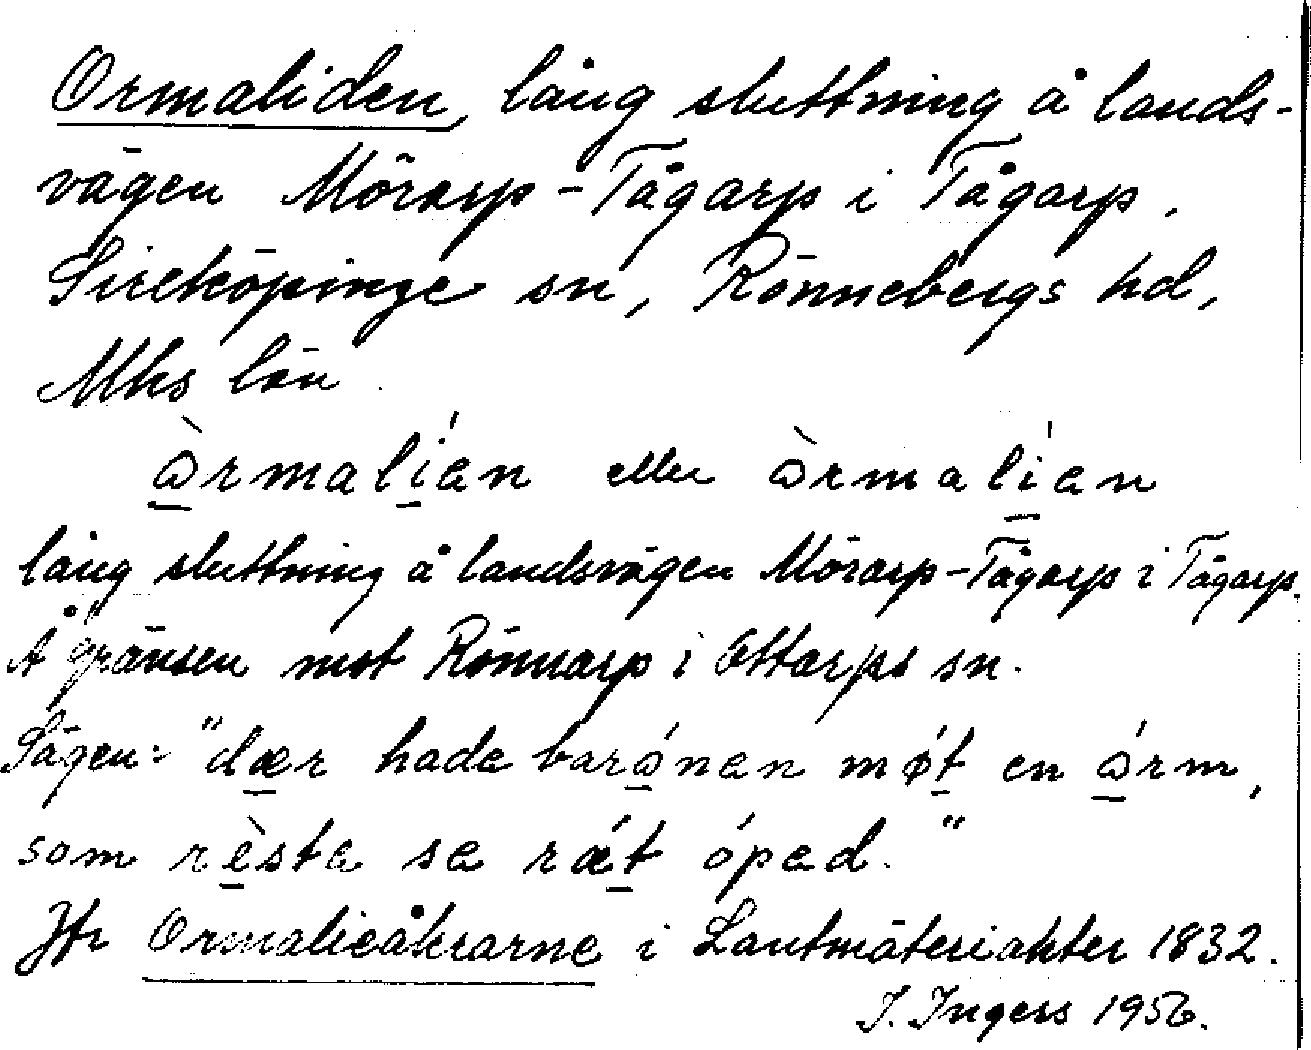 Ormaliden, lång sluttning å lands-
vägen Mörarp-Tågarp i Tågarp,
Sireköpinge sn, Rönnebergs hd,
Mhs län.
ɔ̀rmalíən eller ɔ̀rmalíən
lång sluttning å landsvägen Mörarp-Tågarp i Tågarp.
Å gränsen mot Rönnarp i Ottarps sn.
Sägen: "dær hade barɔ́nən møt en ɔ́rm,
som rèsta sə rǽt ópəd."
Jfr Ormalieåkrarne i Lantmäteriakter 1832.
I. Ingers 1956.